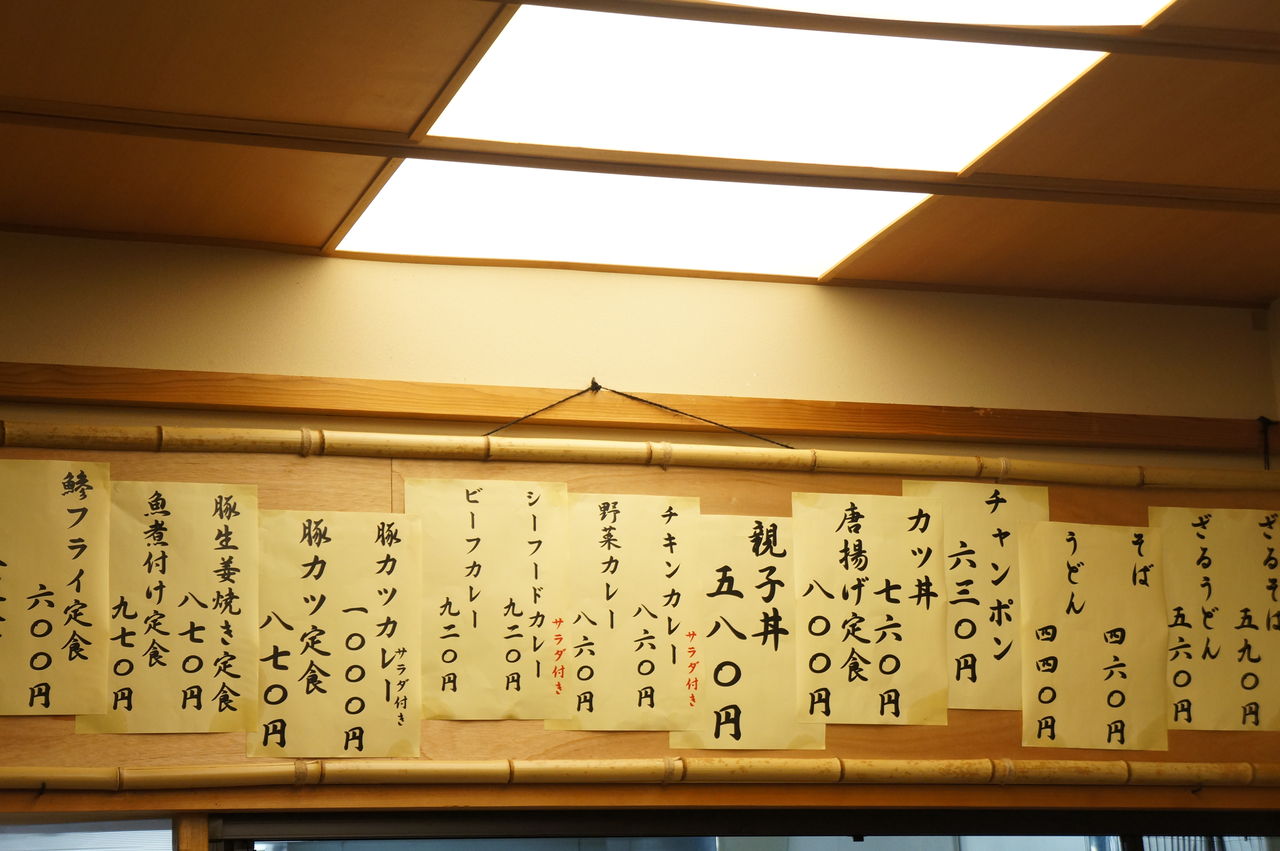 ざるそば
五九〇円
ざるうどん
五六〇円
そば
四六〇円
うどん
四四〇円
チャンポン
六三〇円
カツ丼
七六〇円
唐揚げ定食
八〇〇円
親子丼
五八〇円
チキンカレー
サラダ付き
八六〇円
野菜カレー
八六〇円
シーフードカレー
サラダ付き
九二〇円
ビーフカレー
九二〇円
豚カツカレー
サラダ付き
一〇〇〇円
豚カツ定食
八七〇円
豚生姜焼き定食
八七〇円
魚煮付け定食
九七〇円
鯵フライ定食
六〇〇円